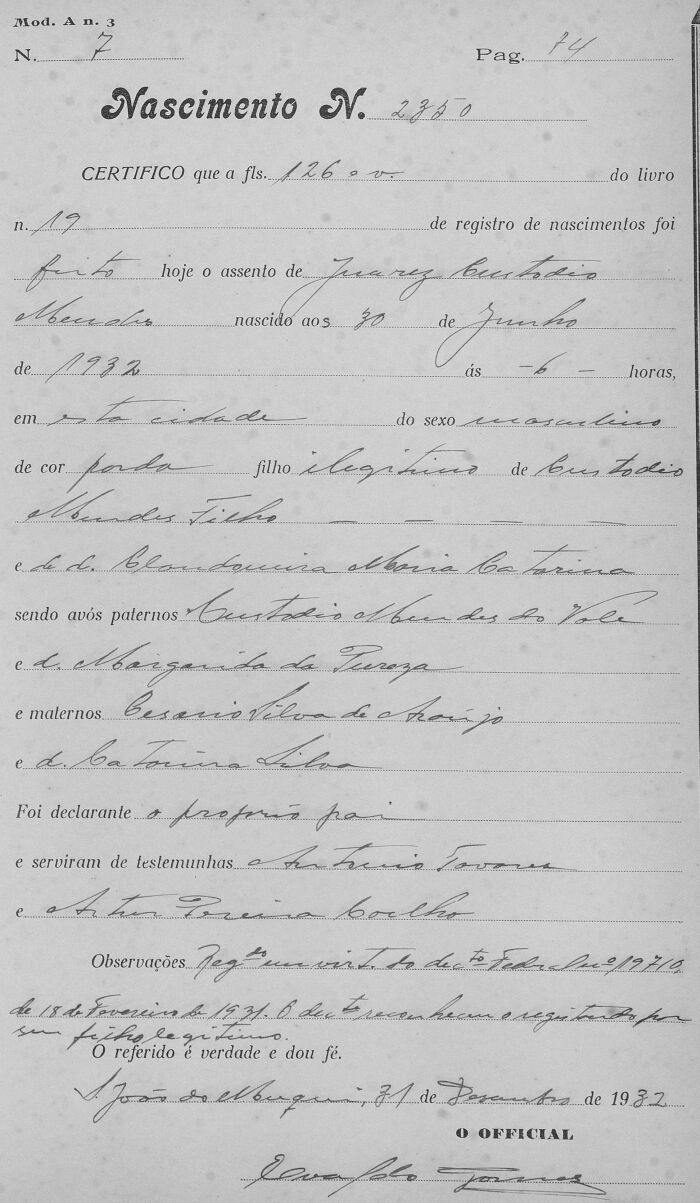 Mod. A n. 3
N. 7 Pag. 74
Nascimento N. 2350
CERTIFICO que a fls. 126 e v. do livro
n. 19 de registro de nascimentos foi
feito hoje o assento de Juarez Custodio
Mendes nascido aos 30 de Junho
de 1932 ás -6- horas,
em esta cidade do sexo masculino
de cor parda filho ilegitimo de Custodio
Mendes Filho — — — —
e de d. Maria Catarina
sendo avós paternos Custodio Mendes do Vale
e d. Margarida da Pureza
e maternos Cesario Silva de Araújo
e d. Catarina Silva
Foi declarante o proprio pai
e serviram de testemunhas Antonio Tavares
e Artur Pereira Coelho
Observações Regdo em virt. do decto Fedral nº 19710,
de 18 de Fevereiro de 1931. O decte reconheceu o registrado por
seu filho legitimo.
O referido é verdade e dou fé.
S. João do Muqui, 31 de Dezembro de 1932
O OFFICIAL